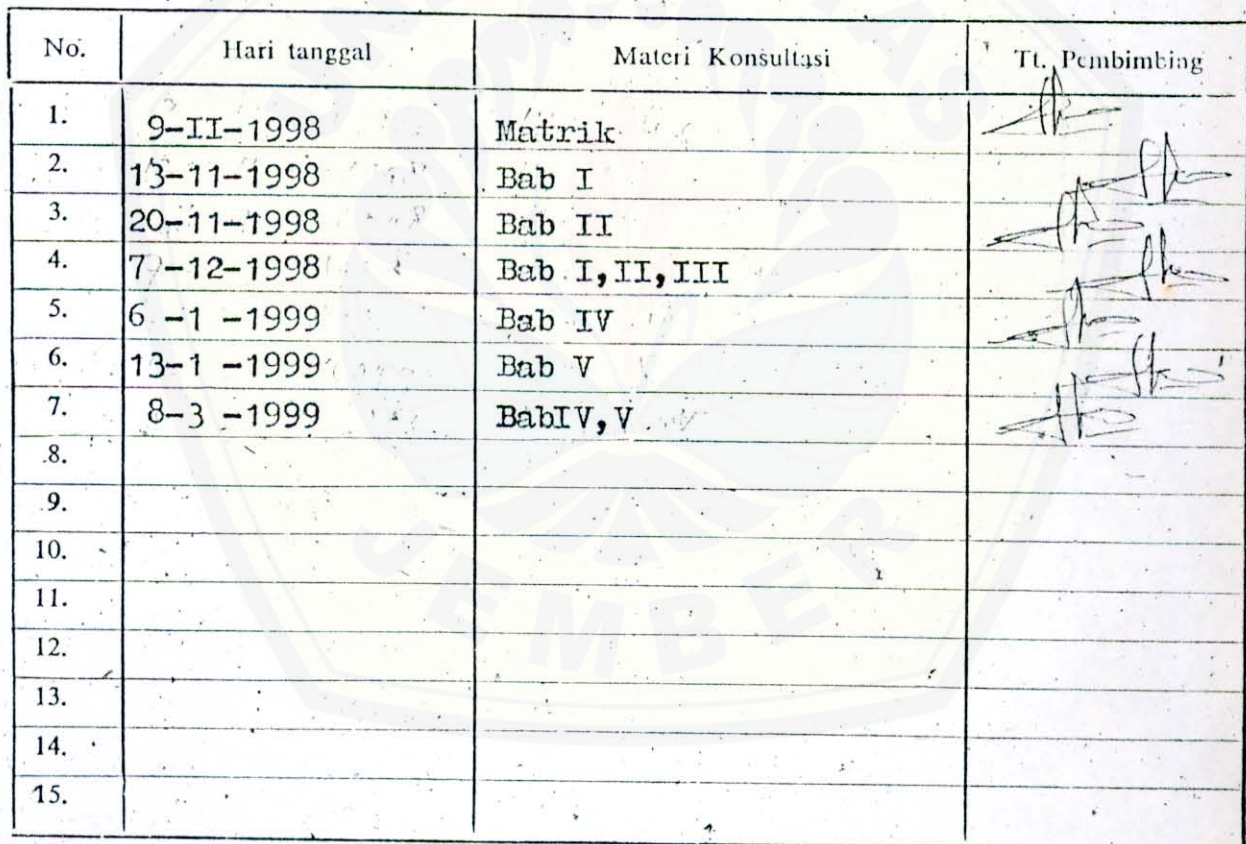 No. Hari tanggal Materi Konsultasi Tt. Pembimbing
1. 9-II-1998 Matrik
2. 13-11-1998 Bab I
3. 20-11-1998 Bab II
4. 7 -12-1998 Bab I,II,III
5. 6 -1 -1999 Bab IV
6. 13-1 -1999 Bab V
7. 8-3 -1999 BabIV,V
8.
9.
10.
11.
12.
13.
14.
15.
JEMBER